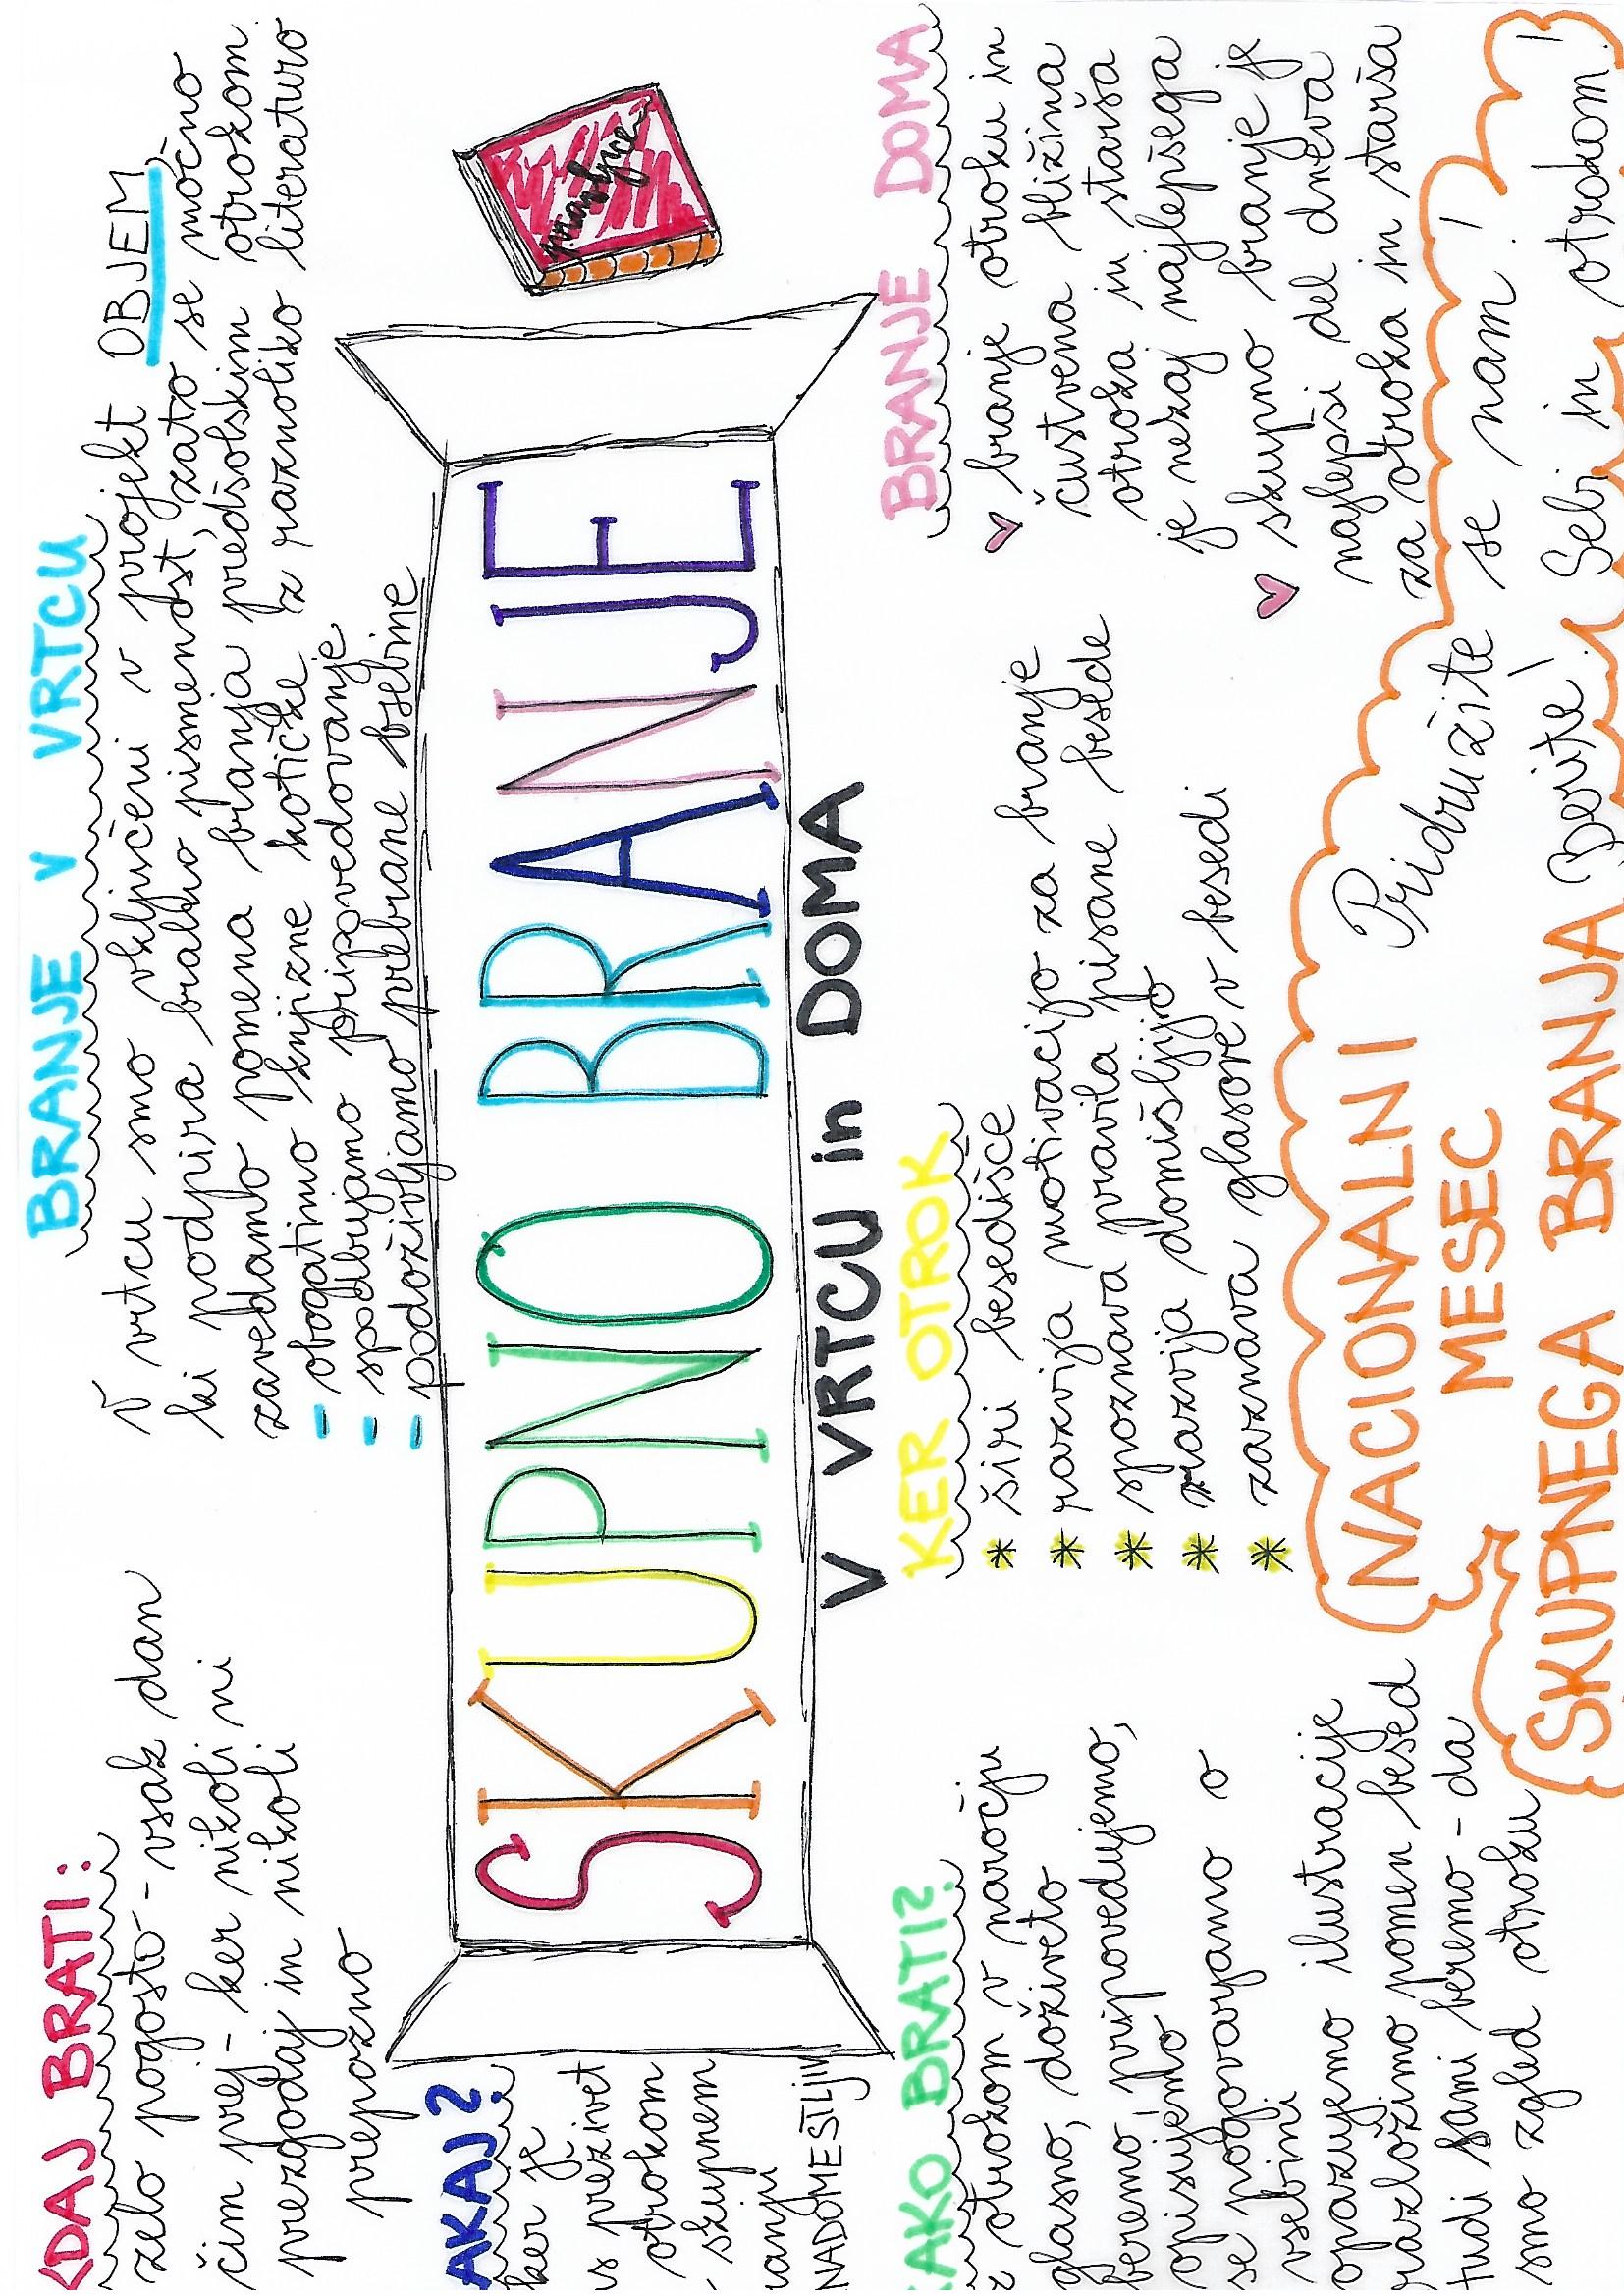 KDAJ BRATI:
zelo pogosto - vsak dan
čim prej - ker nikoli ni
prezgodaj in nikoli
prepozno
BRANJE V VRTCU
V vrtcu smo vključeni v projekt OBJEM,
ki podpira bralno pismenost, zato se močno
zavedamo pomena branja predšolskim otrokom.
- obogatimo knjižne kotičke z raznoliko literaturo
- spodbujamo pripovedovanje
- podoživljamo prebrane vsebine
AKAJ?
ker je
as preživet
otrokom
- skupnem
ranju
NADOMESTLJIV
SKUPNO BRANJE
V VRTCU in DOMA
pravljice
KAKO BRATI?
z otrokom v naročju
glasno, doživeto
beremo, pripovedujemo,
opisujemo
se pogovarjamo o
vsebini
opazujemo ilustracije
razložimo pomen besed
tudi sami beremo - da
smo zgled otroku
KER OTROK
* širi besedišče
* razvija motivacijo za branje
* spoznava pravila pisane besede
* razvija domišljijo
* zaznava glasove v besedi
BRANJE DOMA
branje otroku in
čustvena bližina
otroka in starša
je nekaj najlepšega
skupno branje je
najlepši del dneva
za otroka in starša
NACIONALNI
MESEC
SKUPNEGA BRANJA
Pridružite se nam!
Sebi in otrokom!